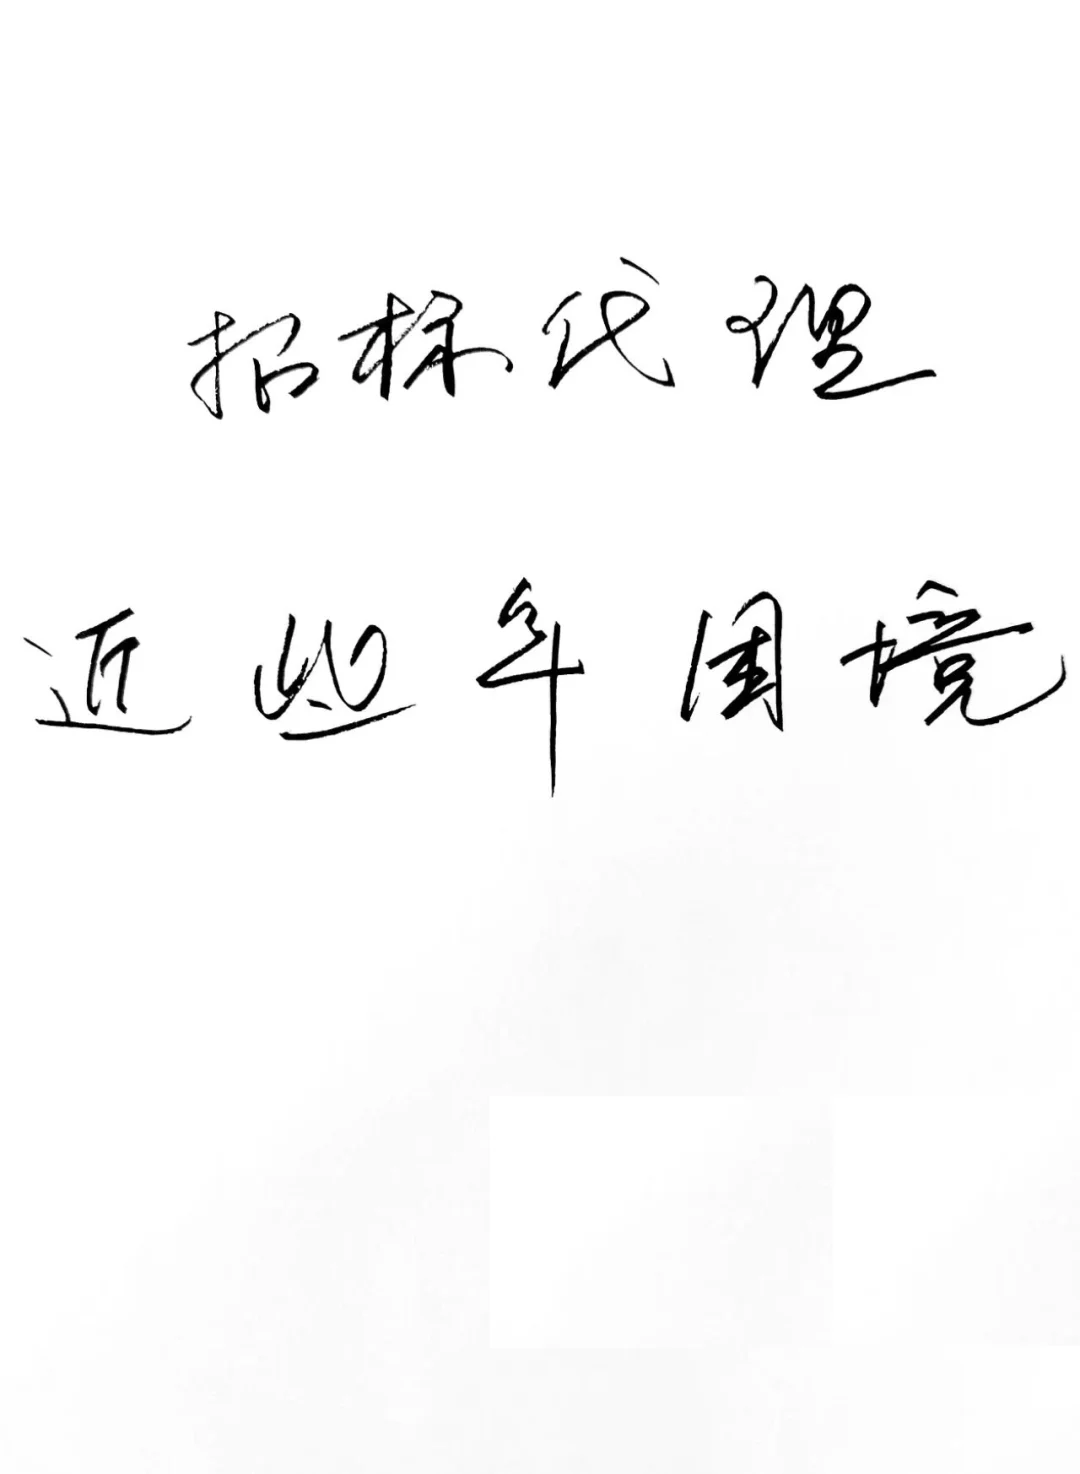 招标代理
近些年困境